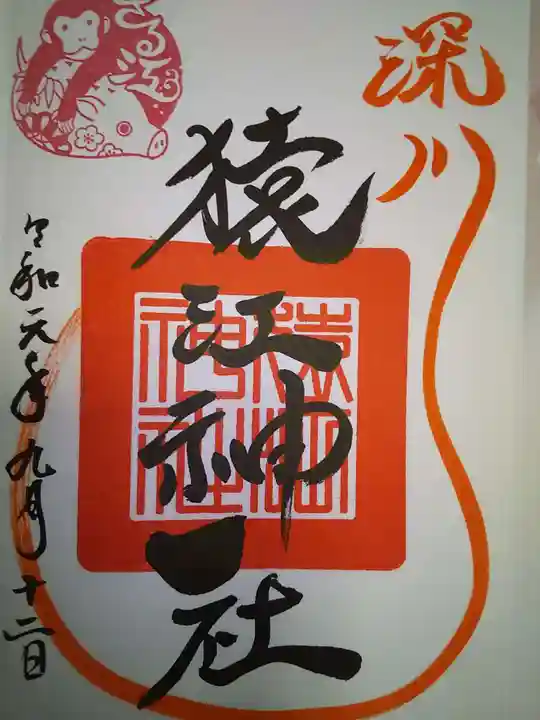 深川
猿江神社
猿江神社
さる江
令和元年九月十二日